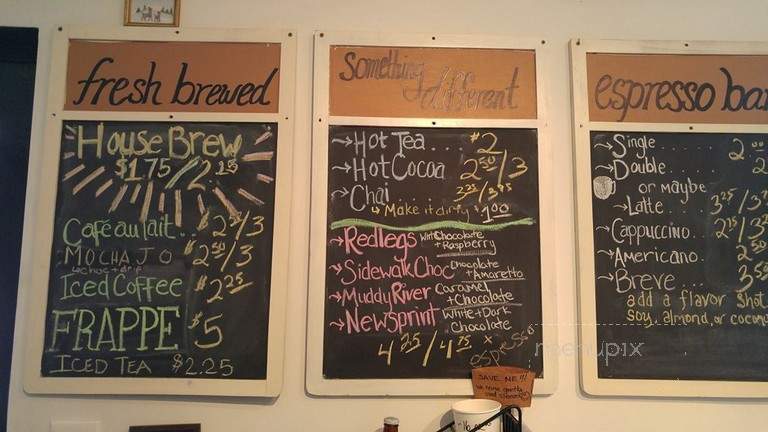 fresh brewed
House Brew
$1.75/2.25
Café au lait.. $2 /3
MOCHA JO $2.50/3
w/choc+drip
Iced Coffee $2.25
FRAPPE $5
ICED TEA $2.25
Something different
→Hot Tea.... $2
→Hot Cocoa 2.50/3
→Chai 3.25/3.75
↳Make it dirty $1.00
→Redlegs Wht Chocolate + Raspberry
→Sidewalk Choc Chocolate + Amaretto
→Muddy River Caramel + Chocolate
→Newsprint White + Dark Chocolate
4.25/4.75
espresso bar
→Single..... 2.00
→Double..
or maybe
→Latte.. 3.25/3.
→Cappuccino..
→Americano.. 2.50
→Breve... 3.50
add a flavor shot
soy, almond, or coconu
SAVE ME!!!
menupix
16